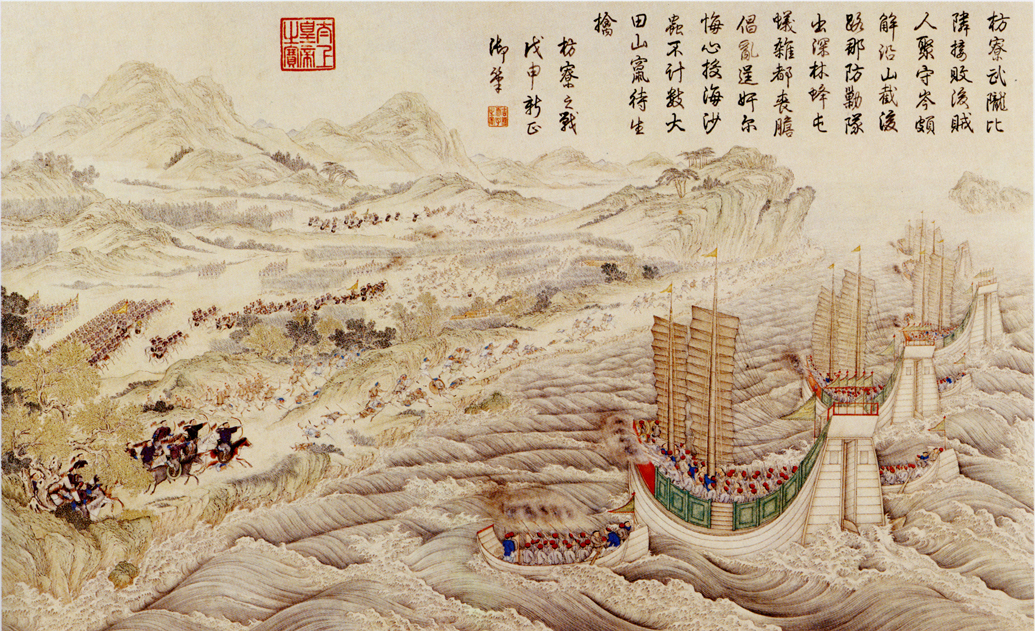 枋寮武隴比
隣接敗後賊
人聚守岑頗
解沿山截後
路那防勦隊
出深林蜂屯
蟻雜都喪膽
倡亂逞奸尔
悔心投海沙
蟲不計數大
田山竄待生
擒
枋寮之戰
戊申新正
御筆
太上皇帝之寶